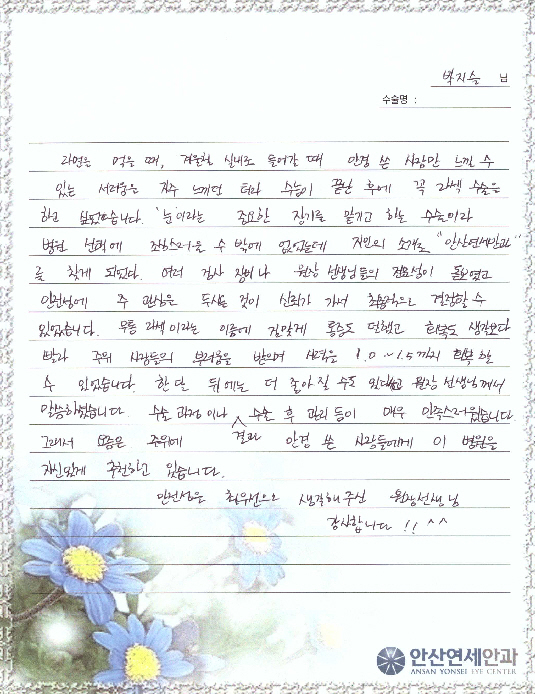 박지슬 님
수술명 :
라면을 먹을 때, 겨울철 실내로 들어갈 때 안경 쓴 사람만 느낄 수
있는 서러움은 자주 느끼던 터라 수능이 끝난 후에 꼭 라섹 수술을
하고 싶었습니다. '눈'이라는 중요한 장기를 맡기고 하는 수술이라
병원 선택에 조심스러울 수 밖에 없었는데 지인의 소개로 "안산연세안과"
를 찾게 되었다. 여러 검사 장비나 원장 선생님들의 전문성이 돋보였고
안전성에 주 관심을 두시는 것이 신뢰가 가서 최종적으로 결정할 수
있었습니다. 무통 라섹이라는 이름에 걸맞게 통증도 덜했고 회복도 생각보다
빨라 주위 사람들의 부러움을 받으며 시력을 1.0~1.5까지 회복 할
수 있었습니다. 한 달 뒤에는 더 좋아질 수도 있다고 원장 선생님께서
말씀하셨습니다. 수술 과정이나 수술 후 관리 등이 매우 만족스러웠습니다.
결과
그래서 요즘은 주위에 안경 쓴 사람들에게 이 병원을
자신있게 추천하고 있습니다.
안전성을 최우선으로 생각해주신 원장선생님
감사합니다!! ^^
안산연세안과
ANSAN YONSEI EYE CENTER